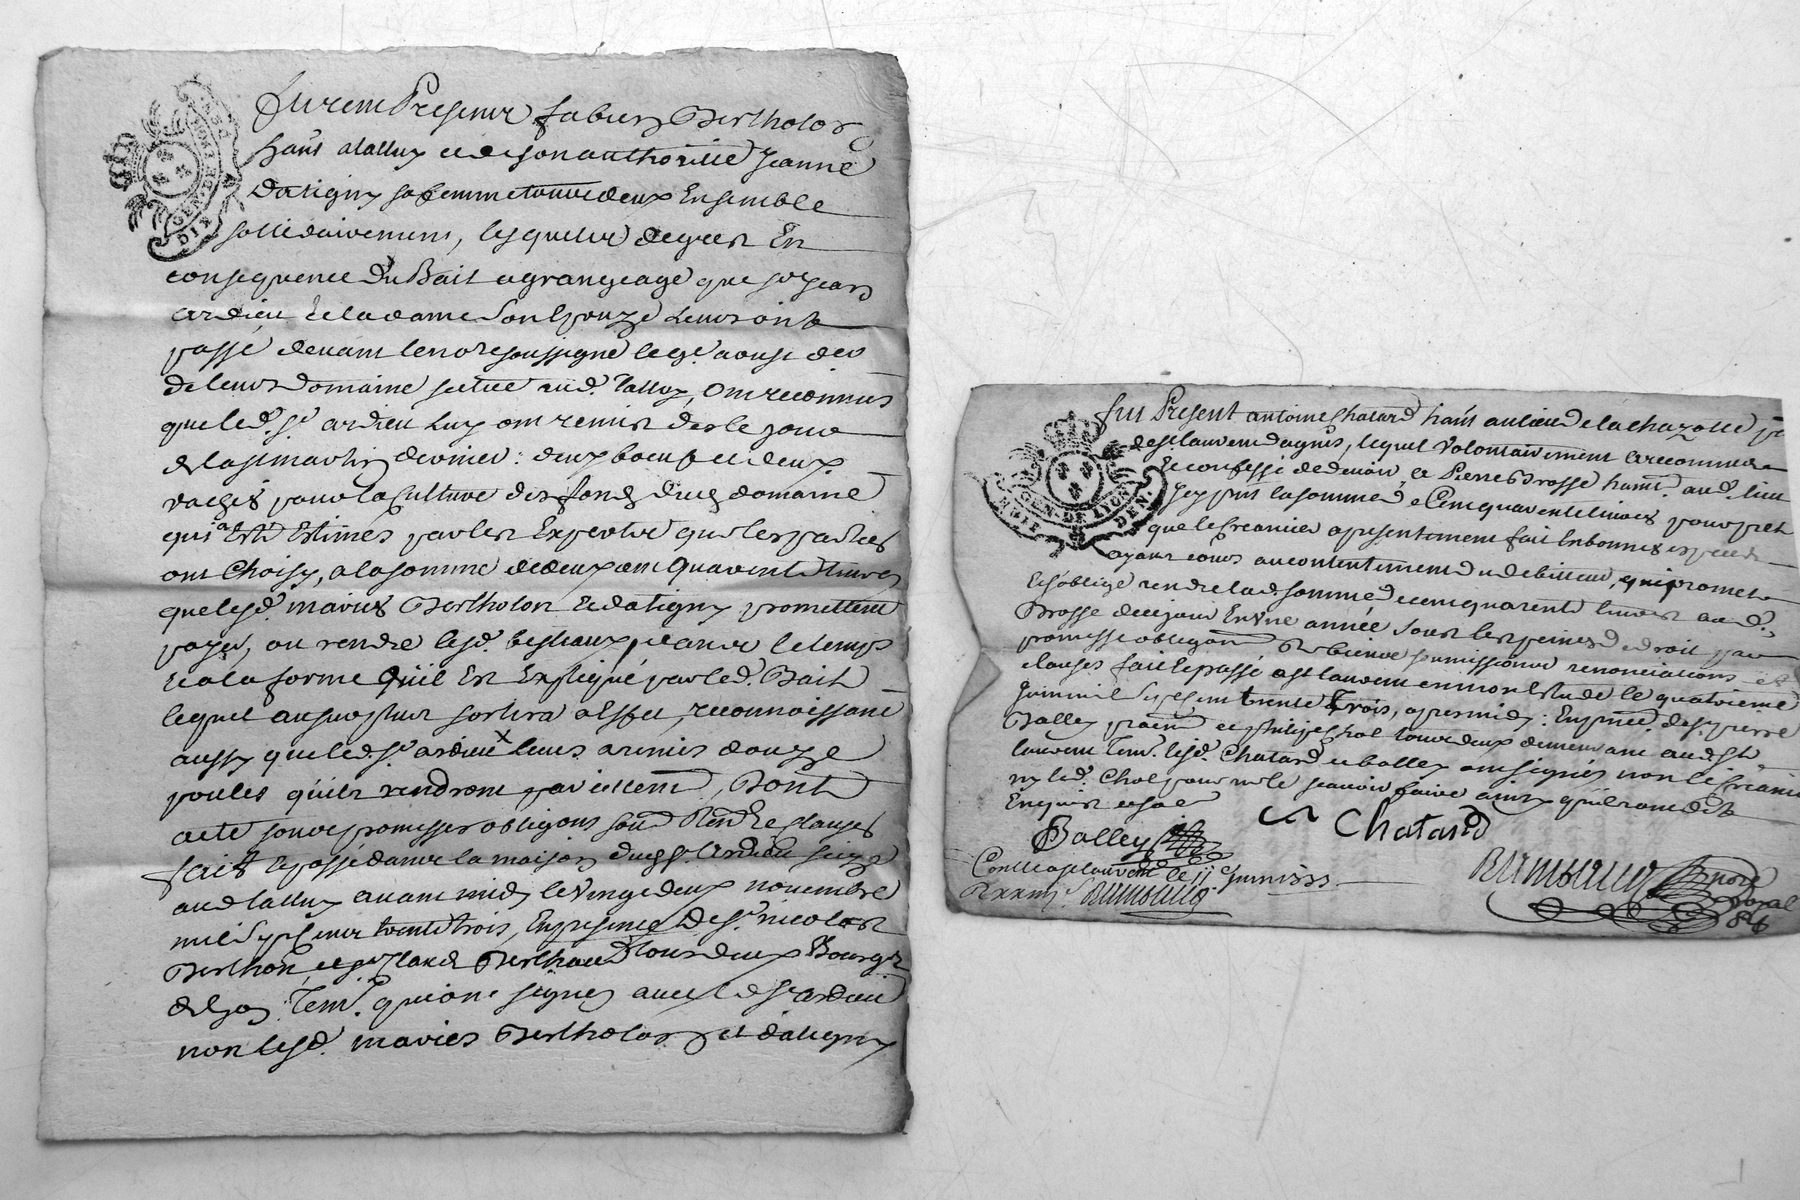 Furent Presents fabien Bertholon
hant a lalluy et de son authorité Jeanne
Datigny sa femme tous deux Ensemble
sollidairement, lesquels degrez En
consequence du Bail a grangeage que Sr Jean
ardieu & la dame Son Epouze Leurs ont
passé devant le nore soussigné le 9e aoust der
de leurs domaine scitué aud. lalluy, Ont reconnus
que led. Sr ardieu Luy ont remis des le jour
de la st martin dernier: deux boeufs et deux
vaches pour la Culture des fonds dud domaine
qui a Esté Estimés par les Experts que les parties
ont Choisy, a la somme de deux cent quarente livres
que lesd. mariés Bertholon & datigny promettent
payer, ou rendre lesd. bestiaux, dans le temps
& a la forme Quil Est Expliqué par led. Bail
lequel au surplus sortira a Effet, reconnoissant
aussy que led. Sr ardieu x leurs a remis douze
poules quils rendront pareillement, Dont
acte sous promesses obligons soub Rend Ee Clauses
fait & passé dans la maison dud Sr Ardieu size
aud lalluy avant midy le vingt deux novembre
mil Sept Cent trente trois, En presence de Sr nicolas
Berthon, et Sr Berthaud tous deux Bourgs
de Lyon Tem. qui ont signés avec led Sr ardieu
non lesd. mariés Bertholon et datigny
GEN·DE·LYON
DIX
Fut Present antoine Chatard hant au lieu de la chazotte pe
de St laurent dagnis, lequel Volontairement a reconnu
& confessé de devoir, a Pierre Brosse hant. aud. lieu
Icy pnt la somme de Cent quarente livres pour pret
que le Creancier a presentement fait En bonnes especes
ayant cours au contentement du debiteur, qui promet
& s'oblige rendre lad. somme de cent quarente livres aud.
Brosse de ce jour En Une année Sous les peines de droit par
promesse obligaon de biens soumissions renonciations &
clauses fait & passé a St laurent en mon Estude le quatrieme
Juin mil Sept Cent trente Trois, apres midy: En pnce de Sr pierre
Balley et philipe Chol tous deux demeurant aud St
laurent Tem. lesd. Chatard et balley ont signés non le Creancier
ny led. Chol pour ne le scavoir faire ainsy quils ont dit
Enquis et so
GEN·DE·LYON
HUIT DEN.
Balley
Chatard
Controllé a St laurent le 11e Juin 1733